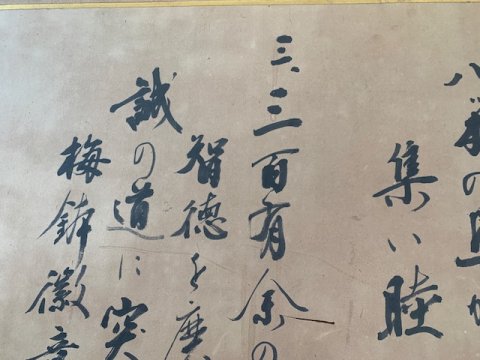 八
の
集い睦
三、三百有余の
智徳を磨
誠の道に突
梅鉢徽章